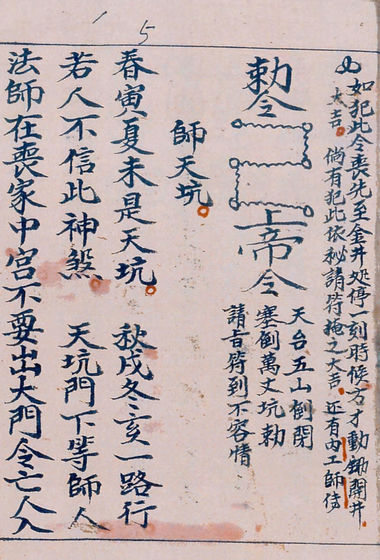 15
如犯此令喪先至金井处停一刻時候方才動鋤開井
大吉。倘有犯此依秘請符掩之大吉 还有內工師侍
勅令
上帝令
天台五山倒閉
塞倒萬丈坑勅
請吉符到不容情
師天坑。
春寅夏未是天坑。秋戌冬亥一路行
若人不信此神煞。天坑門下等師人
法師在喪家中宮不要出大門令亡人入